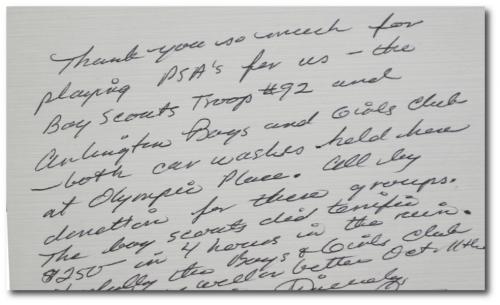 Thank you so much for
playing PSA's for us - the
Boy Scouts Troop #92 and
Arlington Boys and Girls Club
- both car washes held here
at Olympic Place. All by
donation for these groups.
The boy scouts did terrific
$250 - in 4 hours in the rain.
the Boys & Girls Club
will do better Oct. 11th